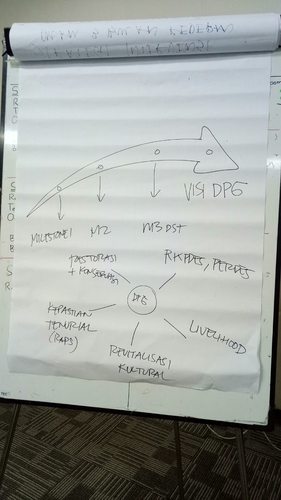 VISI DPG
MILESTONE 1
M2
M3 DST
RESTORASI
+ KONSERVASI
RKPDES, PERDES
DPG
KEPASTIAN
TENURIAL
(RAPS)
LIVELIHOOD
REVITALISASI
KULTURAL